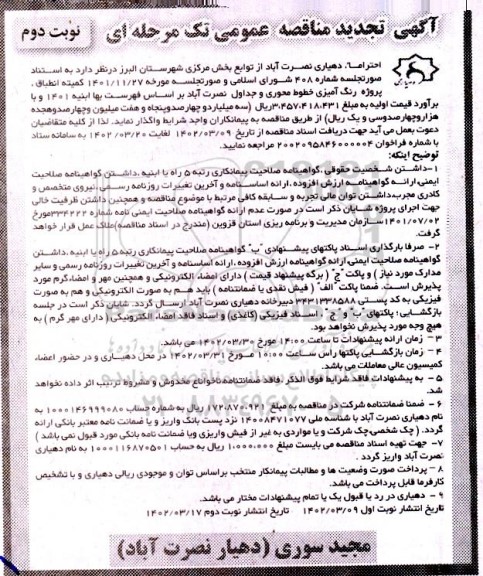 آگهی تجدید مناقصه عمومی تک مرحله ای
نوبت دوم
احتراما، دهیاری نصرت آباد از توابع بخش مرکزی شهرستان البرز درنظر دارد به استناد
صورتجلسه شماره ۴۰۸ شورای اسلامی و صورتجلسه مورخه ۱۴۰۱/۱۱/۲۷ کمیته انطباق،
پروژه رنگ آمیزی خطوط محوری و جداول نصرت آباد بر اساس فهرست بها ابنیه ۱۴۰۱ و با
برآورد قیمت اولیه به مبلغ ۳،۴۵۷،۴۱۸،۴۳۱ریال (سه میلیاردو چهارصدوپنجاه و هفت میلیون وچهارصدوهجده
هزاروچهارصدوسی و یک ریال) از طریق مناقصه به پیمانکاران واجد شرایط واگذار نماید. لذا از کلیه متقاضیان
دعوت بعمل می آید جهت دریافت اسناد مناقصه از تاریخ ۱۴۰۲/۰۳/۰۹ لغایت ۱۴۰۲/۰۳/۲۰ به سامانه ستاد
با شماره فراخوان ۲۰۰۲۰۹۵۸۴۶۰۰۰۰۰۴ مراجعه نمایید.
توضیح اینکه:
۱-داشتن شخصیت حقوقی ،گواهینامه صلاحیت پیمانکاری رتبه ۵ راه یا ابنیه ،داشتن گواهینامه صلاحیت
ایمنی ارائـه گواهینامـه ارزش افزوده ،ارائه اساسنامه و آخرین تغییرات روزنامه رسمی ،نیروی متخصص و
کادری مجرب،داشتن توان مالی تجربه و سابقه کافی مرتبط با موضوع مناقصه و همچنین داشتن ظرفیت خالی
جهت اجرای پروژه شایان ذکر است در صورت عدم ارائه گواهینامه صلاحیت ایمنی نامه شماره ۳۳۴۲۲۲مورخ
۱۴۰۱/۰۷/۰۲سازمان مدیریت و برنامه ریزی استان قزوین (مندرج در اسناد مناقصه)ملاک عمل قرار خواهد
گرفت.
۲- صرفا بارگذاری اسناد پاکتهای پیشنهادی "ب" گواهینامه صلاحیت پیمانکاری رتبه ۵ راه یا ابنیه ،داشتن
گواهینامه صلاحیت ایمنی ارائه گواهینامه ارزش افزوده ،ارائه اساسنامه و آخرین تغییرات روزنامه رسمی و سایر
مدارک مورد نیاز) و پاکت "ج" ( برگه پیشنهاد قیمت ) دارای امضاء الکترونیکی و همچنین مهر و امضاءگرم مورد
پذیرش است. ضمنا پاکت "الف" ( فیش نقدی یا ضمانتنامه ) باید هم به صورت الکترونیکی و هم به صورت
فیزیکی به کد پستی ۳۴۳۱۳۳۸۵۸۸ دبیرخانه دهیاری نصرت آباد ارسال گردد. شایان ذکر است در جلسه
بازگشایی؛ پاکتهای "ب" و "ج" ، اسناد فیزیکی (کاغذی) و اسناد فاقد امضاء الکترونیکی ( دارای مهر گرم ) به
هیچ وجه مورد پذیرش نخواهد بود.
۳ - زمان ارائه پیشنهادات تا ساعت ۱۴:۰۰ مورخ ۱۴۰۲/۰۳/۳۰ می باشد.
۴ - زمان بازگشایی پاکتها رأس ساعت ۱۰:۰۰ مورخ ۱۴۰۲/۰۳/۳۱ در محل دهیاری و در حضور اعضاء
کمیسیون عالی معاملات می باشد.
۵ - به پیشنهادات فاقد شرایط فوق الذکر ،فاقد ضمانتنامه ناخوانای مخدوش و مشروط ترتیب اثر داده نخواهد
شد.
۶ - ضمنا ضمانتنامه شرکت در مناقصه به مبلغ ۱۷۲،۸۷۰،۹۲۱ ریال به شماره حساب ۱۰۰۰۱۴۶۹۹۹۰۸۰ به
نام دهیاری نصرت آباد با شناسه ملی ۱۴۰۰۸۴۷۱۰۷۷ نزد پست بانک واریز و یا ضمانت نامه معتبر بانکی ارائه
گردد. ( چک شخصی،چک شرکت و یا مواردی به غیر از فیش واریزی ویا ضمانت نامه بانکی مورد قبول نمی باشد )
۷- جهت تهیه اسناد مناقصه می بایست مبلغ ۱،۰۰۰،۰۰۰ ریال به حساب ۱۰۰۰۱۱۶۸۷۰۵۰۱ به نام دهیاری
نصرت آباد واریز گردد.
۸ - پرداخت صورت وضعیت ها و مطالبات پیمانکار منتخب براساس توان و موجودی ریالی دهیاری و با تشخیص
کارفرما قابل پرداخت می باشد.
۹ - دهیاری در رد یا قبول یک یا تمام پیشنهادات مختار می باشد.
تاریخ انتشار نوبت اول ۱۴۰۲/۰۳/۰۹ تاریخ انتشار نوبت دوم ۱۴۰۲/۰۳/۱۷
مجید سوری (دهیار نصرت آباد)